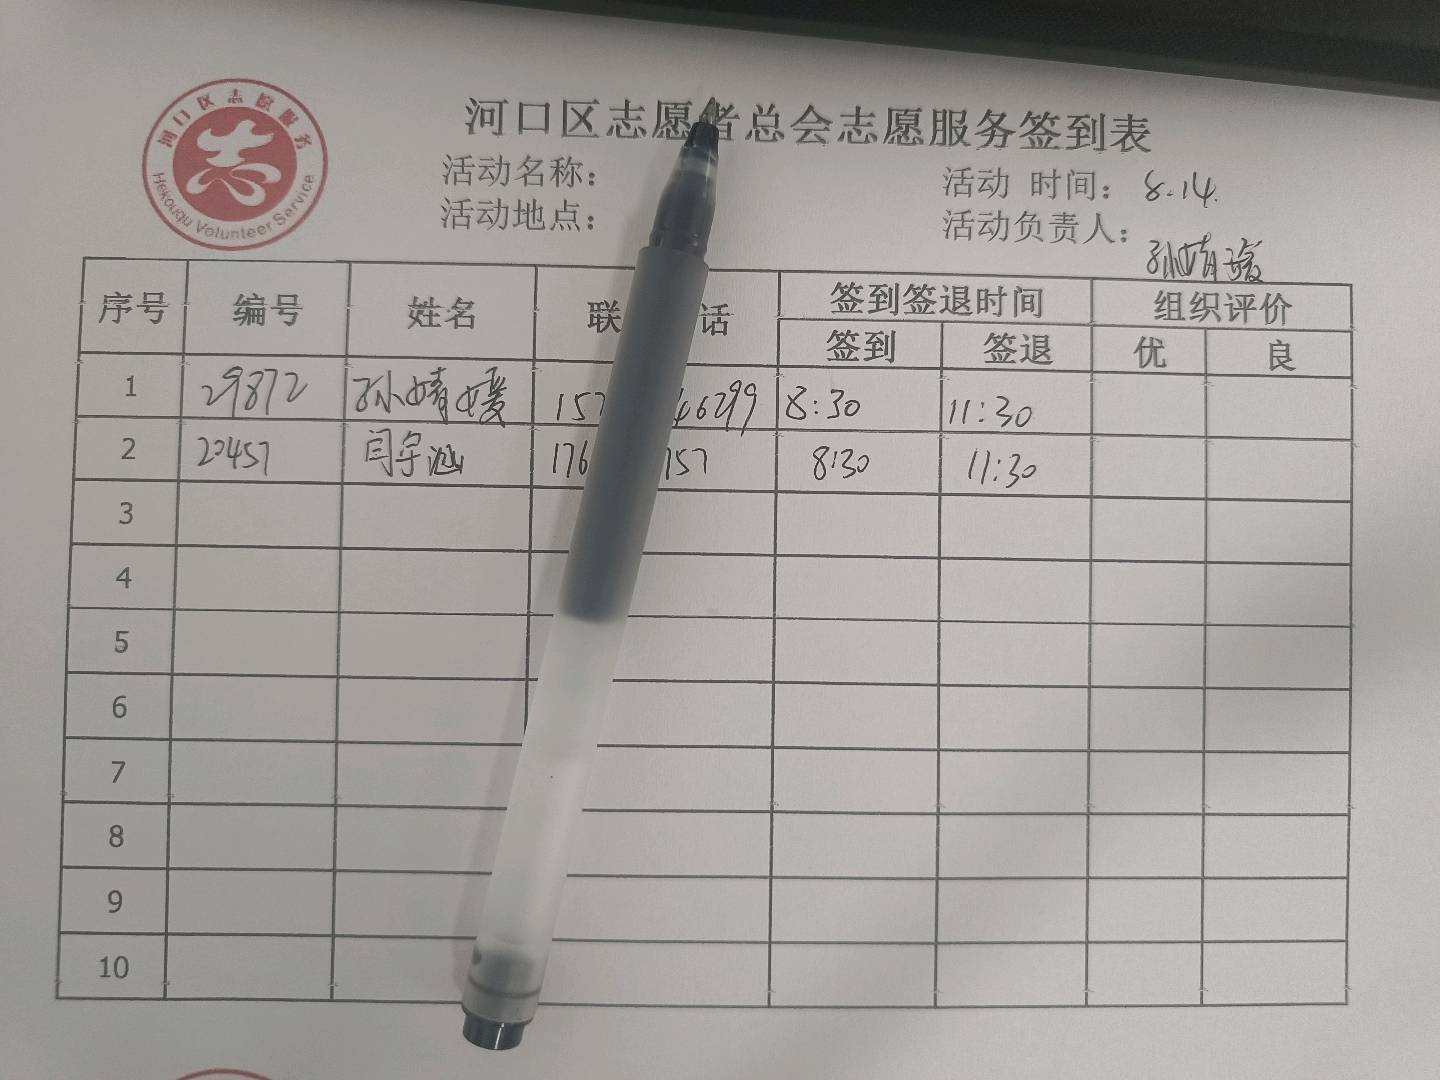 河口区志愿服务
Hekouqu Volunteer Service
河口区志愿者总会志愿服务签到表
活动名称：
活动时间：8.14.
活动地点：
活动负责人：孙婧媛
序号 编号 姓名 联 话 签到签退时间 组织评价
签到 签退 优 良
1 29872 孙婧媛 157 46299 8:30 11:30
2 20457 闫宇涵 176 157 8:30 11:30
3
4
5
6
7
8
9
10